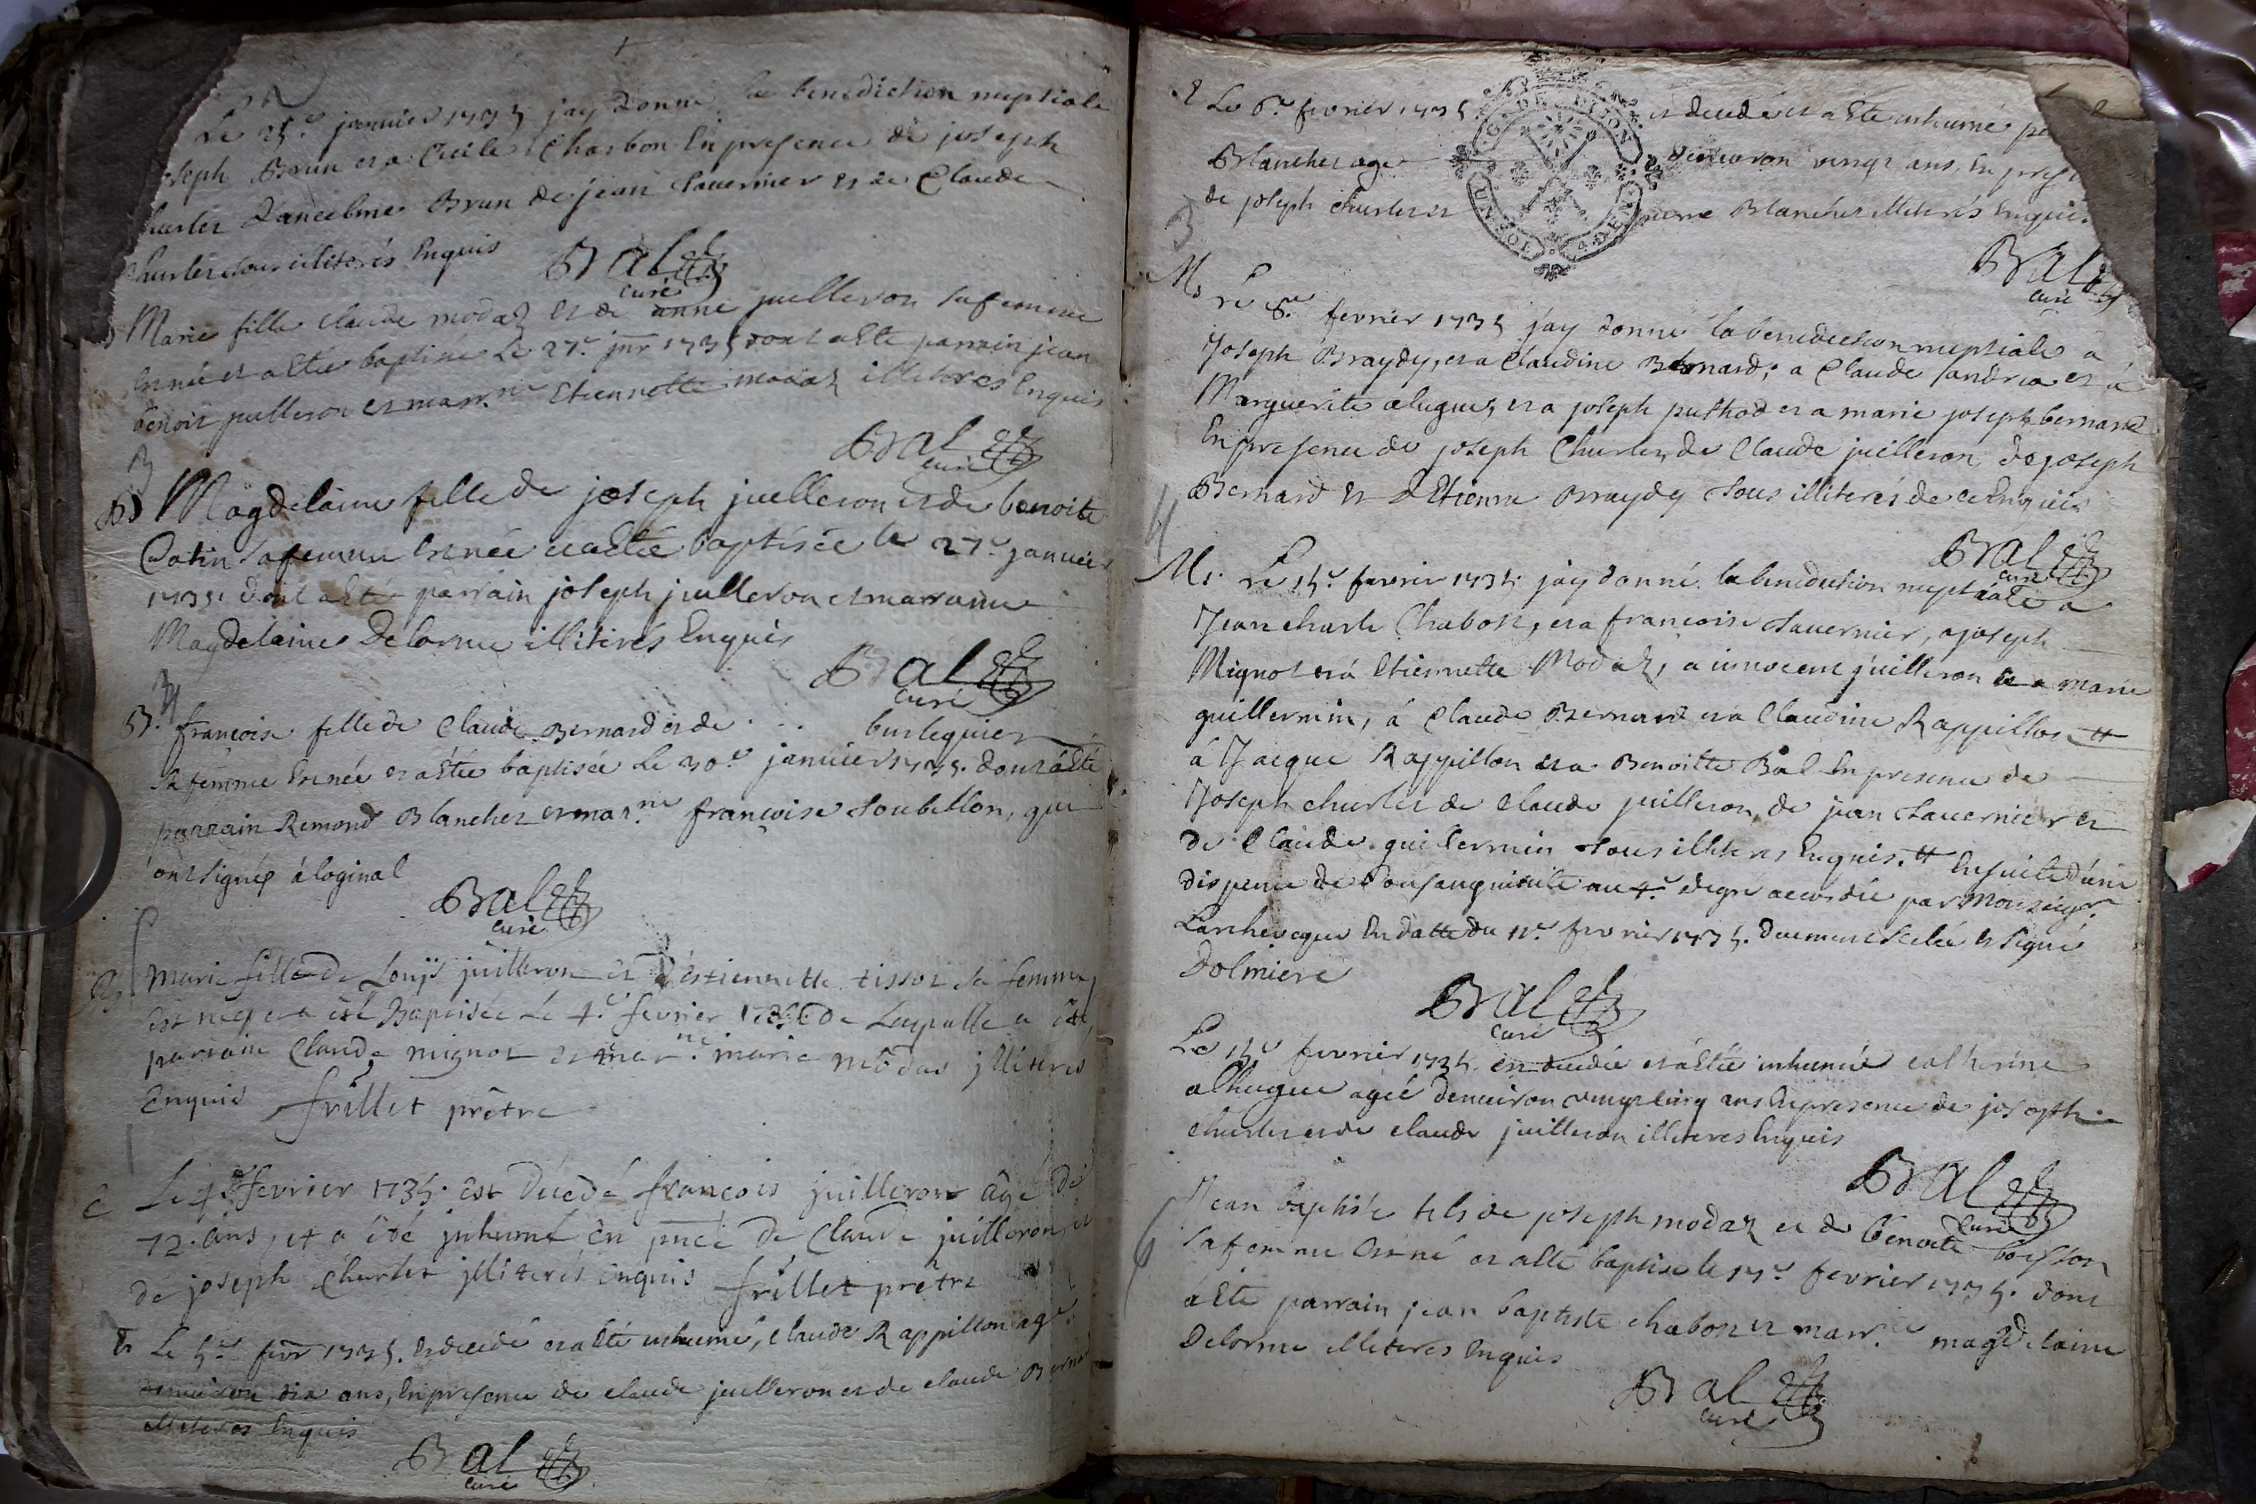 Le 25.e janvier 1735 jay donné la benediction nuptiale
oseph Brun et a Cecile Charbon En presence de joseph
hurlet d'ancelme Brun de jean tavernier et de Claude
hurlet tous illiterés Enquis
Bal
curé
Marie fille claude modaz et de anne juilleron sa femme
Est née et a estée baptisée Le 27.e jnr 1735 dont a esté parrain jean
benoit juilleron et marr.ne Etiennette modaz illiteres Enquis
Bal
curé
B
Magdelaine fille de joseph juilleron et de benoite
Catin sa femme Est née et a estée baptisée le 27.e janvier
1735. dont a esté parrain joseph juilleron et marraine
Magdelaine Delorme illiterés Enquis
Bal
Curé
B. francoise fille de Claude Bernard et de . . . burlequier
sa femme Est née et a estée baptisée Le 30.e janvier 1735. dont a esté
parrain Remond Blanchet et mar.ne françoise soubellon, qui
ont signés a loginal
Bal
Curé
marie fille de Louys juilleron et d'estiennette tissot sa femme,
est née et a été Baptisée Le 4.e fevrier 1735 de Laquelle a été
parrain Claude mignot et mar.ne marie modas jlliterés
Enquis frillet prêtre
Le 4.e fevrier 1735. est décedé françois juilleron âgé de
72. ans, et a été jnhumé En pnce de Claude juilleron et
de joseph Churlet jlliterés enquis frillet prêtre
Le 5.e fevr 1735. Est decedé et a esté inhumé, claude Rappillon ag.é
denviron dix ans, En presence de claude juilleron et de claude Berna
illiteres Enquis
Bal
Curé
Le 6.e fevrier 1735 est decedé et a este inhumé
Blanchet age denviron vingt ans, En pres
de joseph churlet et pierre Blanchet illiterés Enquis.
GN. DE LION
Bal
curé
3
M. Le 8.e fevrier 1735 jay donné la benediction nuptiale a
Joseph Braydy, et a Claudine Bernard; a Claude Jandria et á
Marguerite alugue, et a joseph puthod et a marie joseph bernard
En presence de joseph Churlet, de Claude juilleron, de joseph
Bernard et d'Etienne Braydy tous illiterés de ce Enquis
Bal
curé
4
M. Le 15.e fevrier 1735. jay donné la benediction nuptiale a
Jean charle Chabot, et a francoise tavernier, a joseph
Mignot et á Etiennette Modaz, a innocent juilleron et a marie
guillermin, á Claude Bernard et a Claudine Rappillon #
á Jacque Rappillon et a Benoitte Bal En presence de
Joseph churlet de Claude juilleron, de jean tavernier et
de Claude guillermin tous illiteres Enquis. # Ensuite d'une
dispence de Consanguinité au 4.e degre accordée par Monseigr.
Larcheveque En datte du 11.e fevrier 1735. duement scelée et signé
Dolmiere
Bal
Curé
Le 15.e fevrier 1735. est decedée et a estée inhumée catherine
alhugue agée denviron vingt cinq ans En presence de joseph
churlet et de claude juilleron illiteres Enquis
Bal
Curé
6
Jean baptiste fils de joseph modaz et de benoite boisson
sa femme Est né et a esté baptisé le 17.e fevrier 1735. dont
a Esté parrain jean baptiste chabot et marr.e magdelaine
Delorme illiteres Enquis
Bal
curé